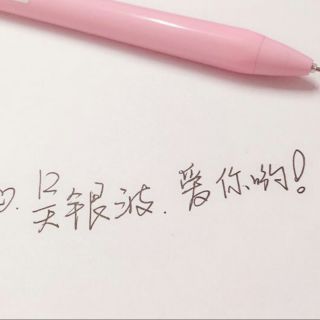 吴银波.爱你哟!